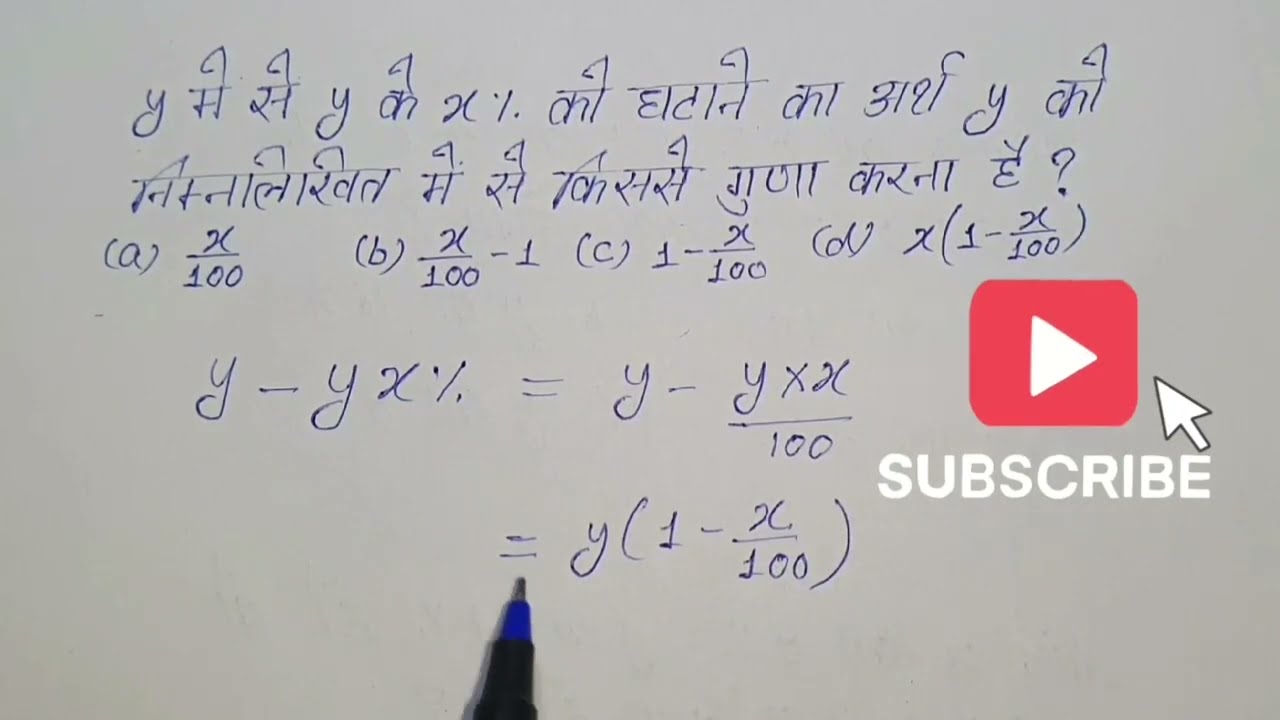 y में से y के x% को घटाने का अर्थ y को
निम्नलिखित में से किससे गुणा करना है ?
(a) x/100 (b) x/100 - 1 (c) 1 - x/100 (d) x(1 - x/100)
y - y x% = y - y×x/100
SUBSCRIBE
= y(1 - x/100)